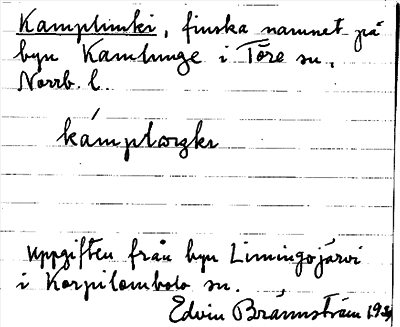 Kamplinki, finska namnet på
byn Kamlunge i Töre sn,
Norrb. l.
Uppgiften från byn Limingojärvi
i Korpilombolo sn.
Edvin Brännström